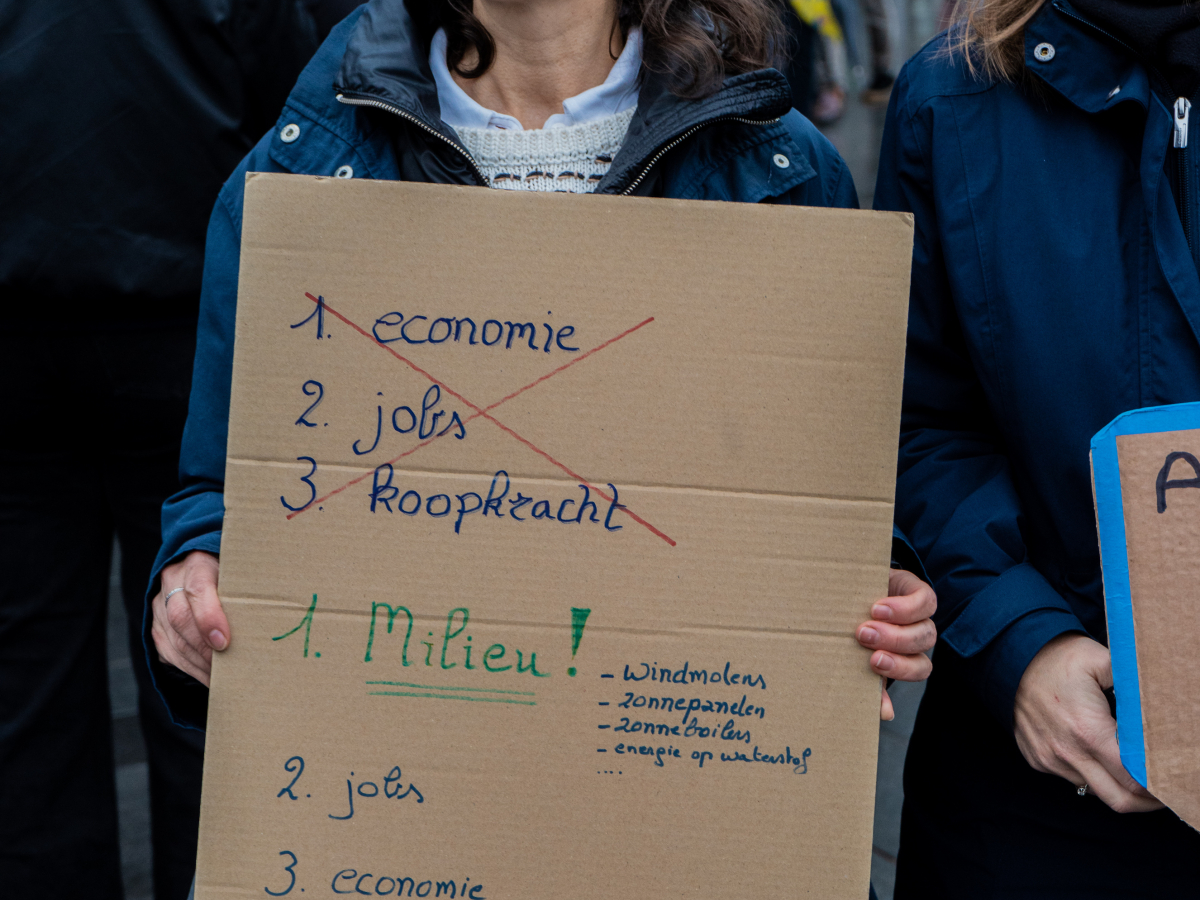 1. economie
2. jobs
3. koopkracht
1. Milieu!
- Windmolens
- zonnepanelen
- zonneboilers
- energie op waterstof
....
2. jobs
3. economie
A